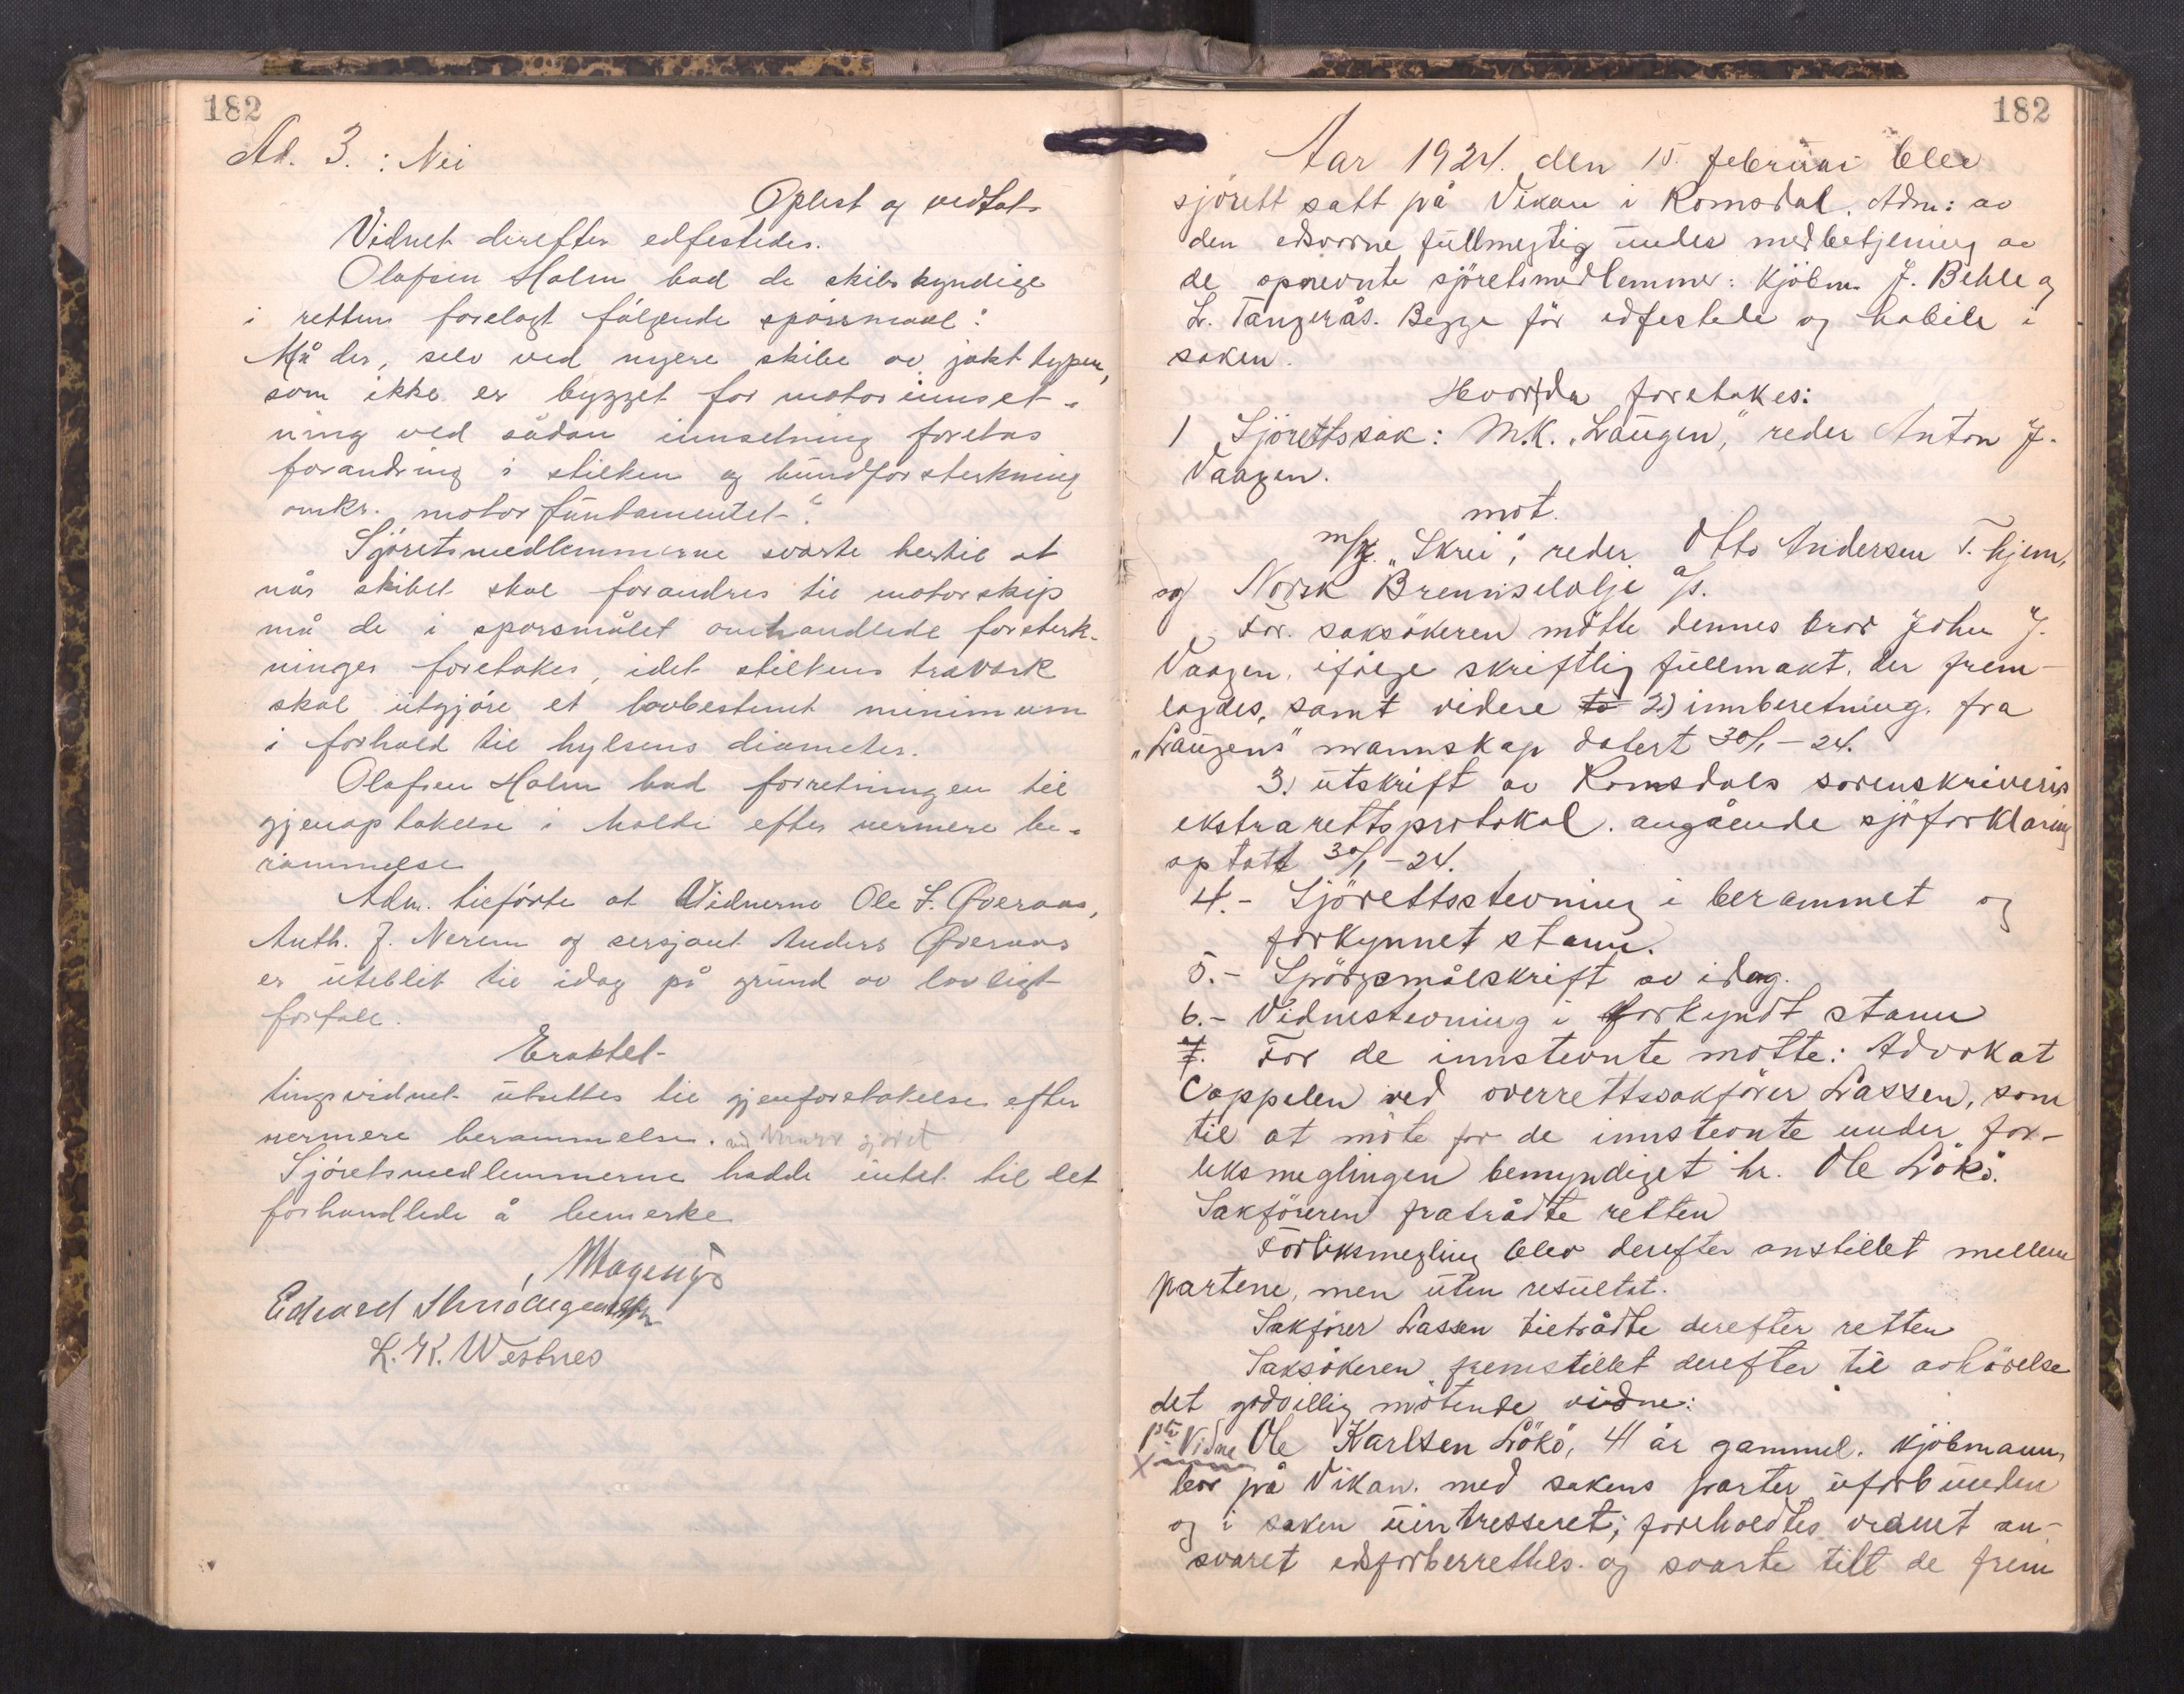 182
Ad. 3. : Nei
Oplest og vedtat
Vidnet derefter edfestedes.
Olafsen Holm bad de skibskyndige
i retten forelagt følgende spørsmaal:
Må der, selv ved nyere skibe av jakt typen,
som ikke er bygget for motorinnset-
ning ved sådan innsetning foretas
forandring i stilken og bundforsterkning
omkr. motorfundamentet?
Sjøretsmedlemmerne svarte hertil at
når skibet skal forandres til motorskip
må de i sporsmålet omhandlede forsterk-
ninger foretakes, idet stilkens traverk
skal utgjøre et lovbestemt minimum
i forhold til hylsens diameter.
Olafsen Holm bad forretningen til
gjenoptakelse i Molde efter nermere be-
rammelse
Adm. tilførte at Vidnerne Ole S. Øveraas,
Anth. J. Nerem og sersjant Anders Øveraas
er uteblit til idag på grund av lovligt
forfall.
Eraktet
tingsvidnet utsettes til gjenforetakelse efter
nermere berammelse.
Sjøretsmedlemmerne hadde intet til det
forhandlede å bemerke
Edvard
L. K. Westnes
182
Aar 1924. den 15. februar blev
sjørett satt på Vikan i Romsdal. Adm: av
den edsvorne fullmegtig under medbetjening av
de opnevnte sjöretsmedlemmer: Kjöbm. J. Behle og
L. Tangerås. Begge för edfestede og habile i
saken.
Hvorda foretakes:
1 Sjörettssak: M.K. "Laugen," reder Anton J.
Vaagen.
mot.
m/k. "Skrei", reder Otto Andersen T. hjem,
og Norsk Brennselolje a/s.
For. saksökeren mötte dennes bror John J.
Vaagen, ifölge skriftlig fullmakt. der frem-
lagdes, samt videre to 2) innberetning. fra
"Laugens" mannskap datert 30/1 - 24.
3.) utskrift av Romsdals sorenskriveris
ekstrarettsprotokol. angående sjöforklaring
optatt 30/1 - 24.
4.- Sjörettsstevning i berammet og
forkynnet stann.
5.- Spörgsmålskrift av idag.
6.- Vidnestevning i forkyndt stann
7. For de innstevnte motte: Advokat
Cappelen ved overrettssakförer Lassen, som
til at möte for de innstevnte under for-
liksmeglingen bemyndiget hr. Ole Lökö.
Sakföreren fratrådte retten
Forliksmegling blev derefter anstillet mellem
partene, men uten resultat.
Sakförer Lassen tiltrådte derefter retten
Saksökeren fremstillet derefter til avhörelse
det godvillig mötende vidne:
1ste Vidne Ole Karlsen Lökö, 41 år gammel. Kjöbmann,
bor på Vikan. med sakens parter uforbunden
og i saken uintresseret; foreholdtes vidnet an-
svaret edsforberrettels. og svarte tilt de frem